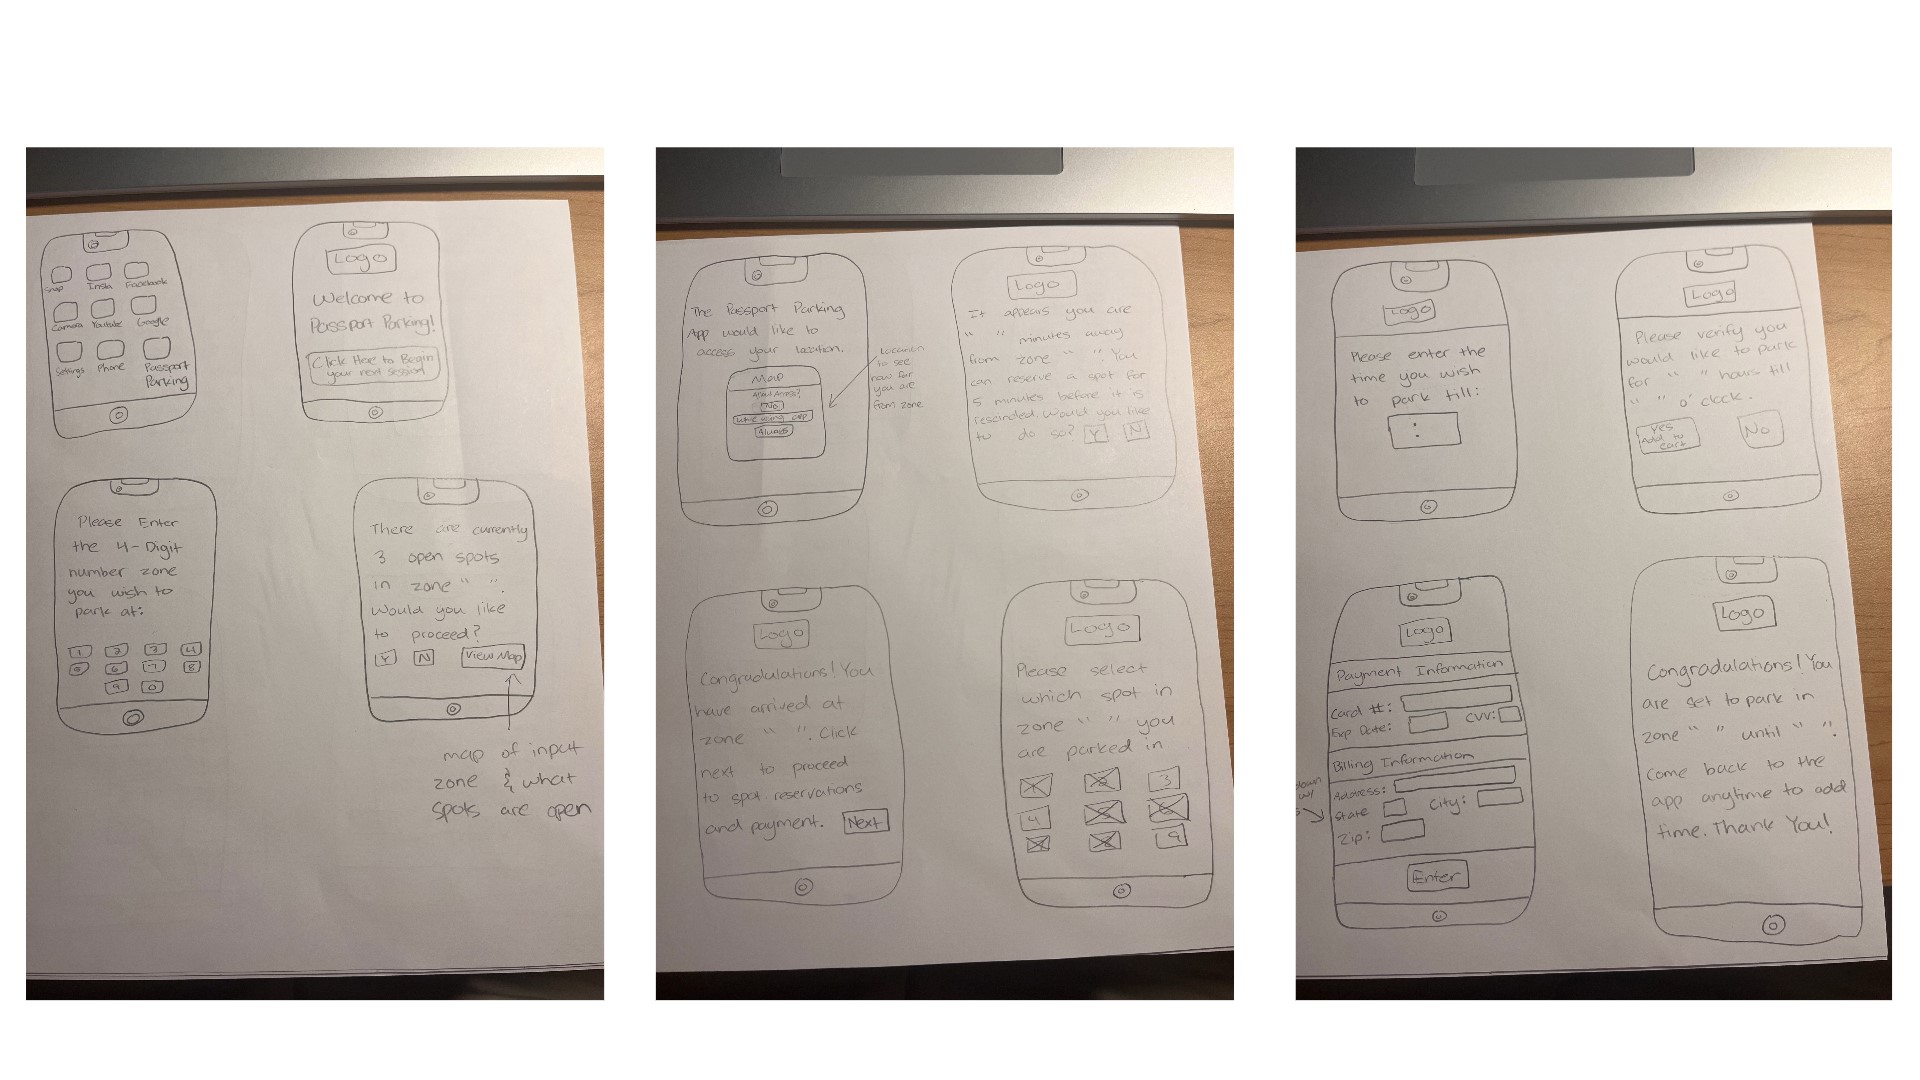 Snap Insta Facebook
Camera Youtube Google
Settings Phone Passport
Parking
Logo
Welcome to
Passport Parking!
Click Here to Begin
your next session
Please Enter
the 4-Digit
number zone
you wish to
park at:
1 2 3 4
5 6 7 8
9 0
There are currently
3 open spots
in zone " ".
Would you like
to proceed?
Y N View Map
map of input
zone & what
spots are open
The Passport Parking
App would like to
access your location.
Map
Allow Access?
No
While using app
Always
Location
to see
how far
you are
from zone
Logo
It appears you are
" " minutes away
from zone " ". You
can reserve a spot for
5 minutes before it is
rescinded. Would you like
to do so? Y N
Logo
Congradulations! You
have arrived at
zone " ". Click
next to proceed
to spot reservations
and payment. Next
Logo
Please select
which spot in
zone " " you
are parked in
3
4
9
Logo
Please enter the
time you wish
to park till:
:
Logo
Please verify you
would like to park
for " " hours till
" " o'clock.
Yes
Add to
cart
No
Logo
Payment Information
Card #:
Exp Date: CVV:
Billing Information
Address:
State City:
Zip:
Enter
down
w/
Logo
Congradulations! You
are set to park in
zone " " until " ".
Come back to the
app anytime to add
time. Thank You!